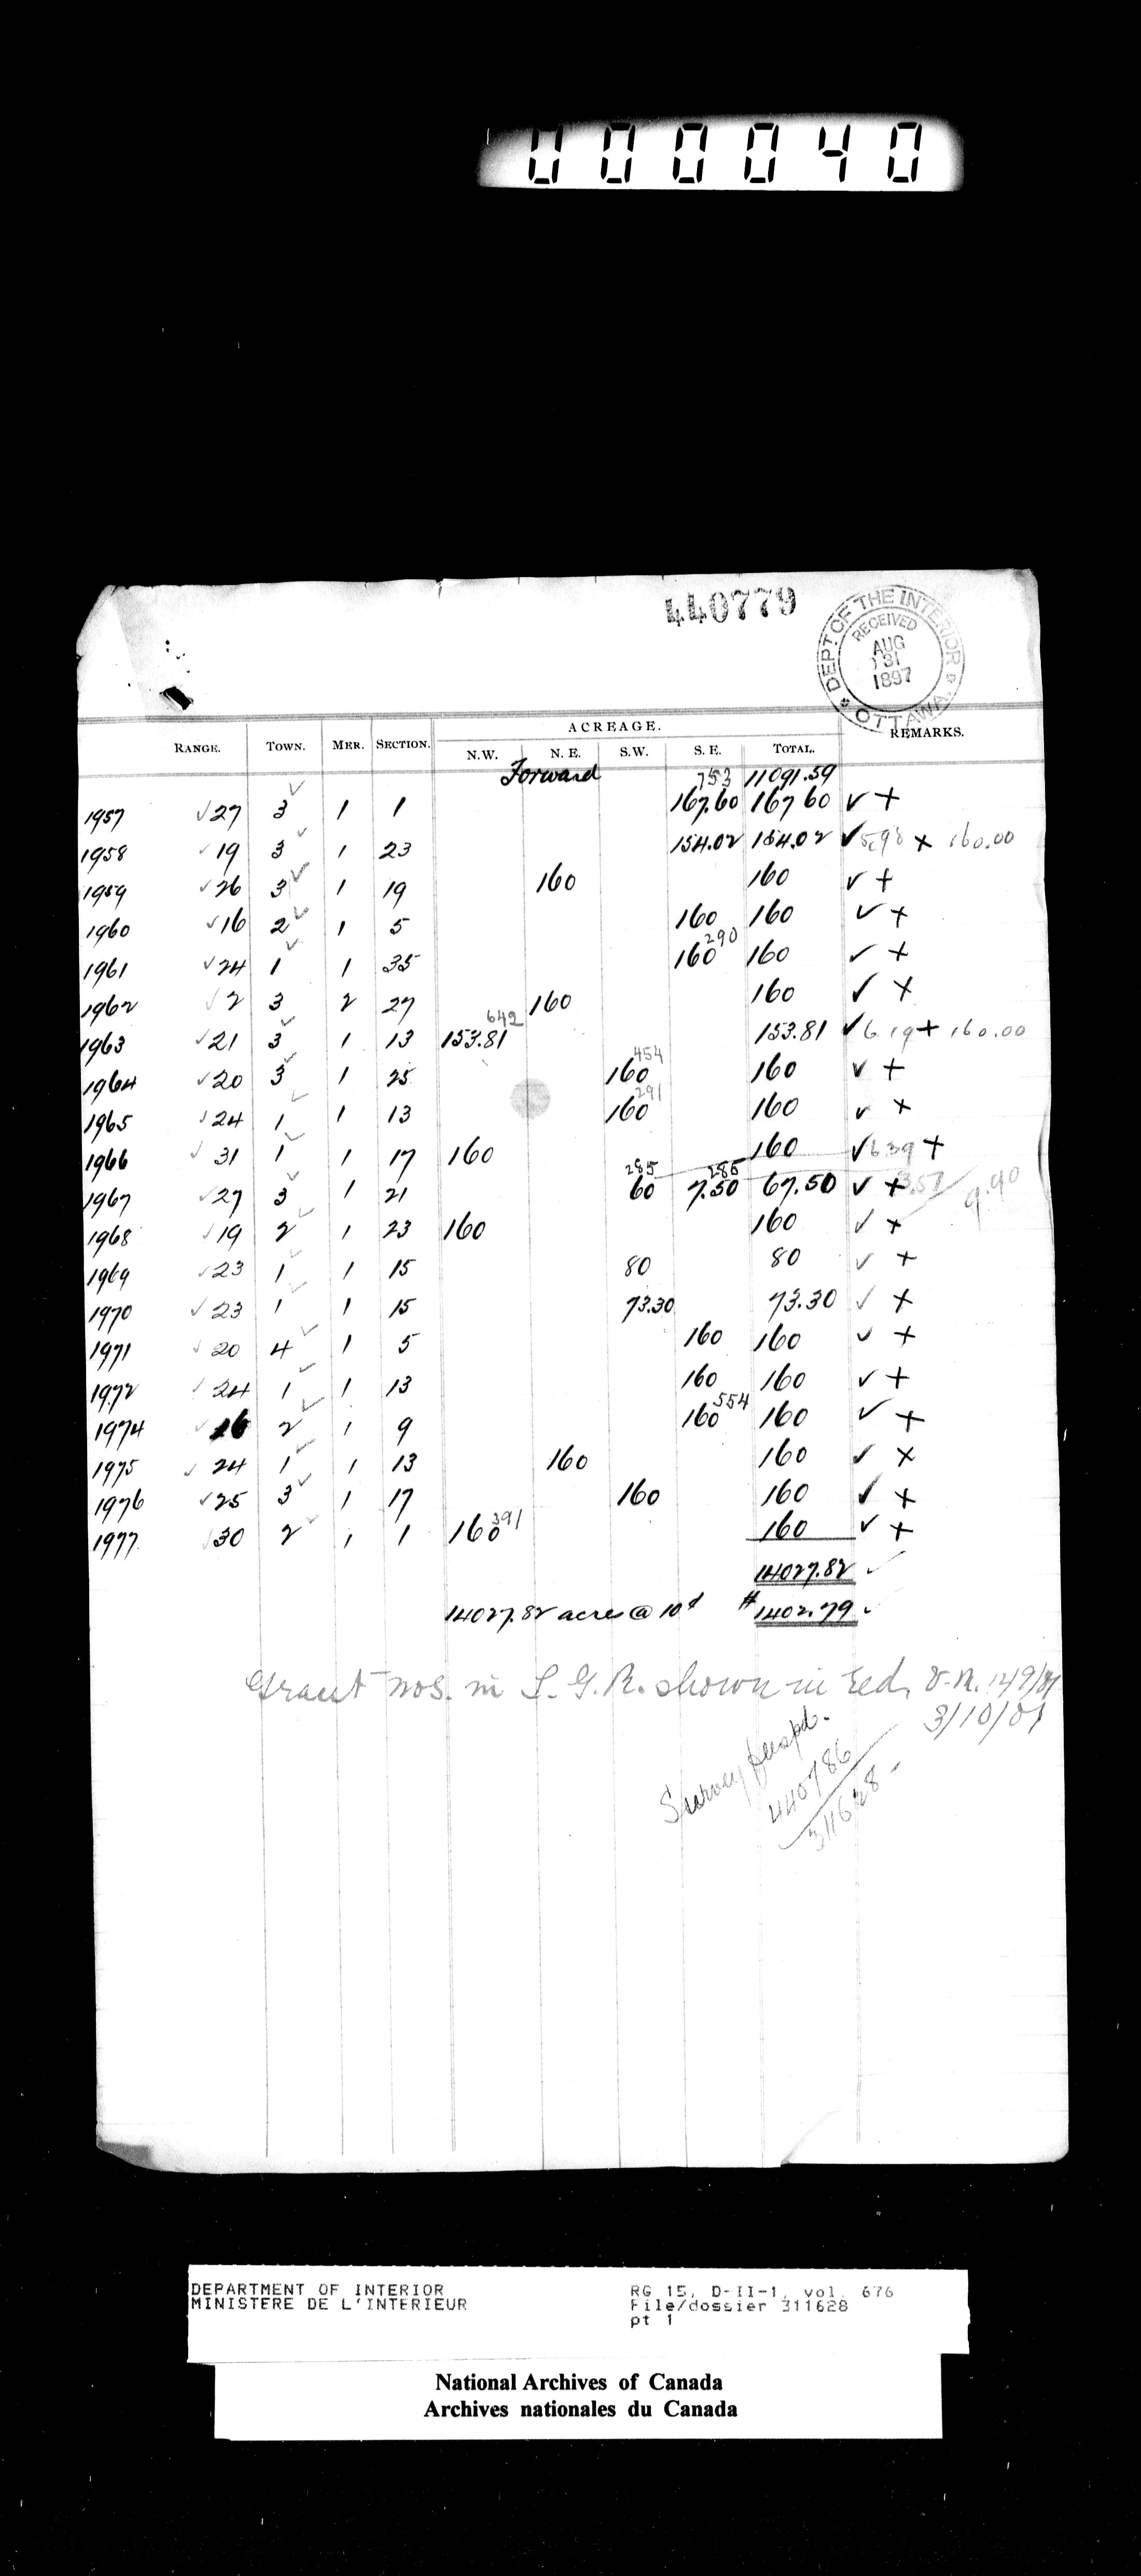 000040
440779
DEPT OF THE INTERIOR
RECEIVED
AUG
31
1897
OTTAWA
ACREAGE.
RANGE. TOWN. MER. SECTION. N.W. N.E. S.W. S.E. TOTAL. REMARKS.
Forward 753 11091.59
1957 ✓27 3✓ 1 1 167.60 167 60 ✓ +
1958 ✓19 3✓ 1 23 154.02 154.02 ✓ 5.98 + 160.00
1959 ✓26 3✓ 1 19 160 160 ✓ +
1960 ✓16 2✓ 1 5 160 160 ✓ +
1961 ✓24 1✓ 1 35 160 290 160 ✓ +
1962 ✓2 3 2 27 160 160 ✓ +
1963 ✓21 3✓ 1 13 153.81 642 153.81 ✓ 6.19 + 160.00
1964 ✓20 3✓ 1 25 160 454 160 ✓ +
1965 ✓24 1✓ 1 13 160 291 160 ✓ +
1966 ✓31 1✓ 1 17 160 160 ✓ 6.39 +
1967 ✓27 3✓ 1 21 285 60 286 7.50 67.50 ✓ + 3.51 9.90
1968 ✓19 2✓ 1 23 160 160 ✓ +
1969 ✓23 1✓ 1 15 80 80 ✓ +
1970 ✓23 1✓ 1 15 73.30 73.30 ✓ +
1971 ✓20 4✓ 1 5 160 160 ✓ +
1972 ✓24 1✓ 1 13 160 160 ✓ +
1974 ✓16 2✓ 1 9 160 554 160 ✓ +
1975 ✓24 1✓ 1 13 160 160 ✓ +
1976 ✓25 3✓ 1 17 160 160 ✓ +
1977 ✓30 2✓ 1 1 160 391 160 ✓ +
14027.82 ✓
14027.82 acres @ 10¢ $1402.79 ✓
Grant nos. in L.G.R. shown in red,
3/10/01
Survey
440786
311628
DEPARTMENT OF INTERIOR RG 15, D-II-1, vol. 676
MINISTERE DE L'INTERIEUR File/dossier 311628
pt 1
National Archives of Canada
Archives nationales du Canada